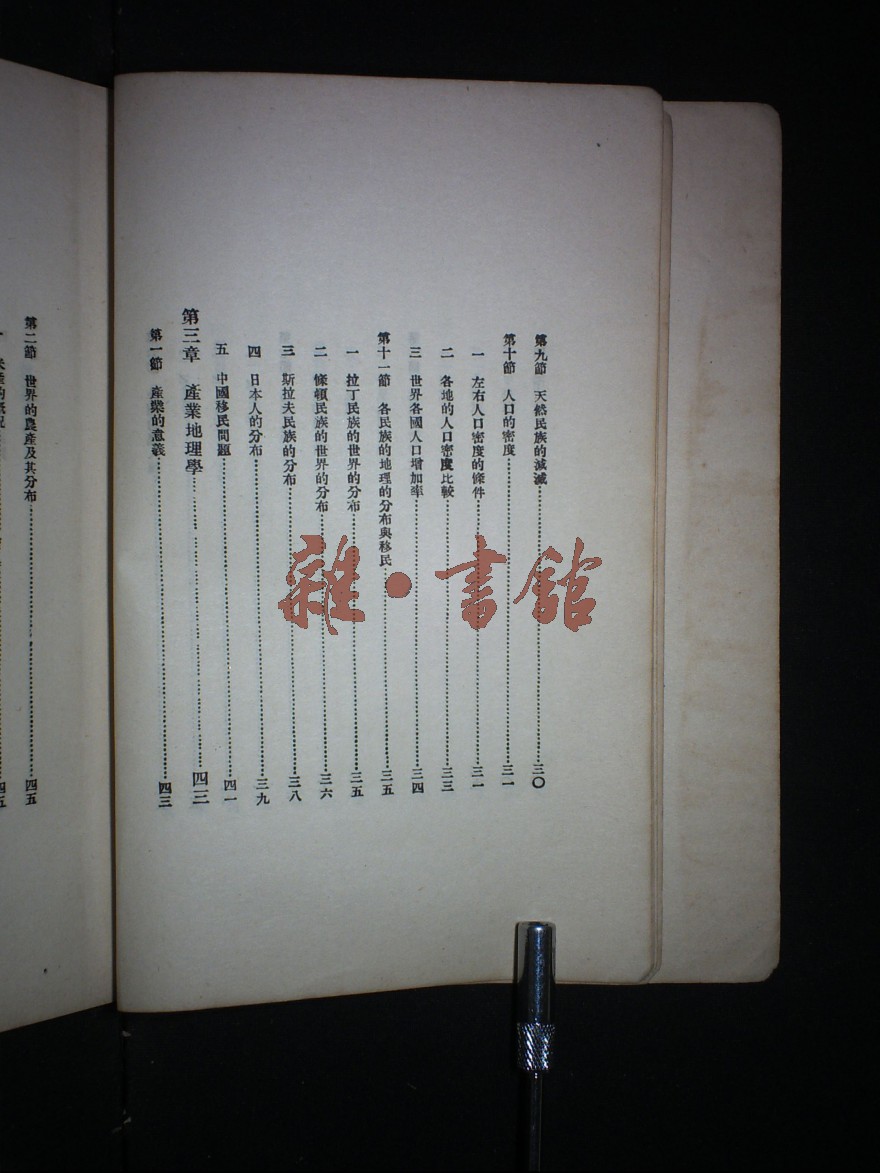 第九節　天然民族的減滅……三〇
第十節　人口的密度……三一
一　左右人口密度的條件……三一
二　各地的人口密度比較……三三
三　世界各國人口增加率……三四
第十一節　各民族的地理的分布與移民……三五
一　拉丁民族的世界的分布……三五
二　條頓民族的世界的分布……三六
三　斯拉夫民族的分布……三八
四　日本人的分布……三九
五　中國移民問題……四一
第三章　產業地理學……四三
第一節　產業的意義……四三
第二節　世界的農產及其分布……四五
雜·書館